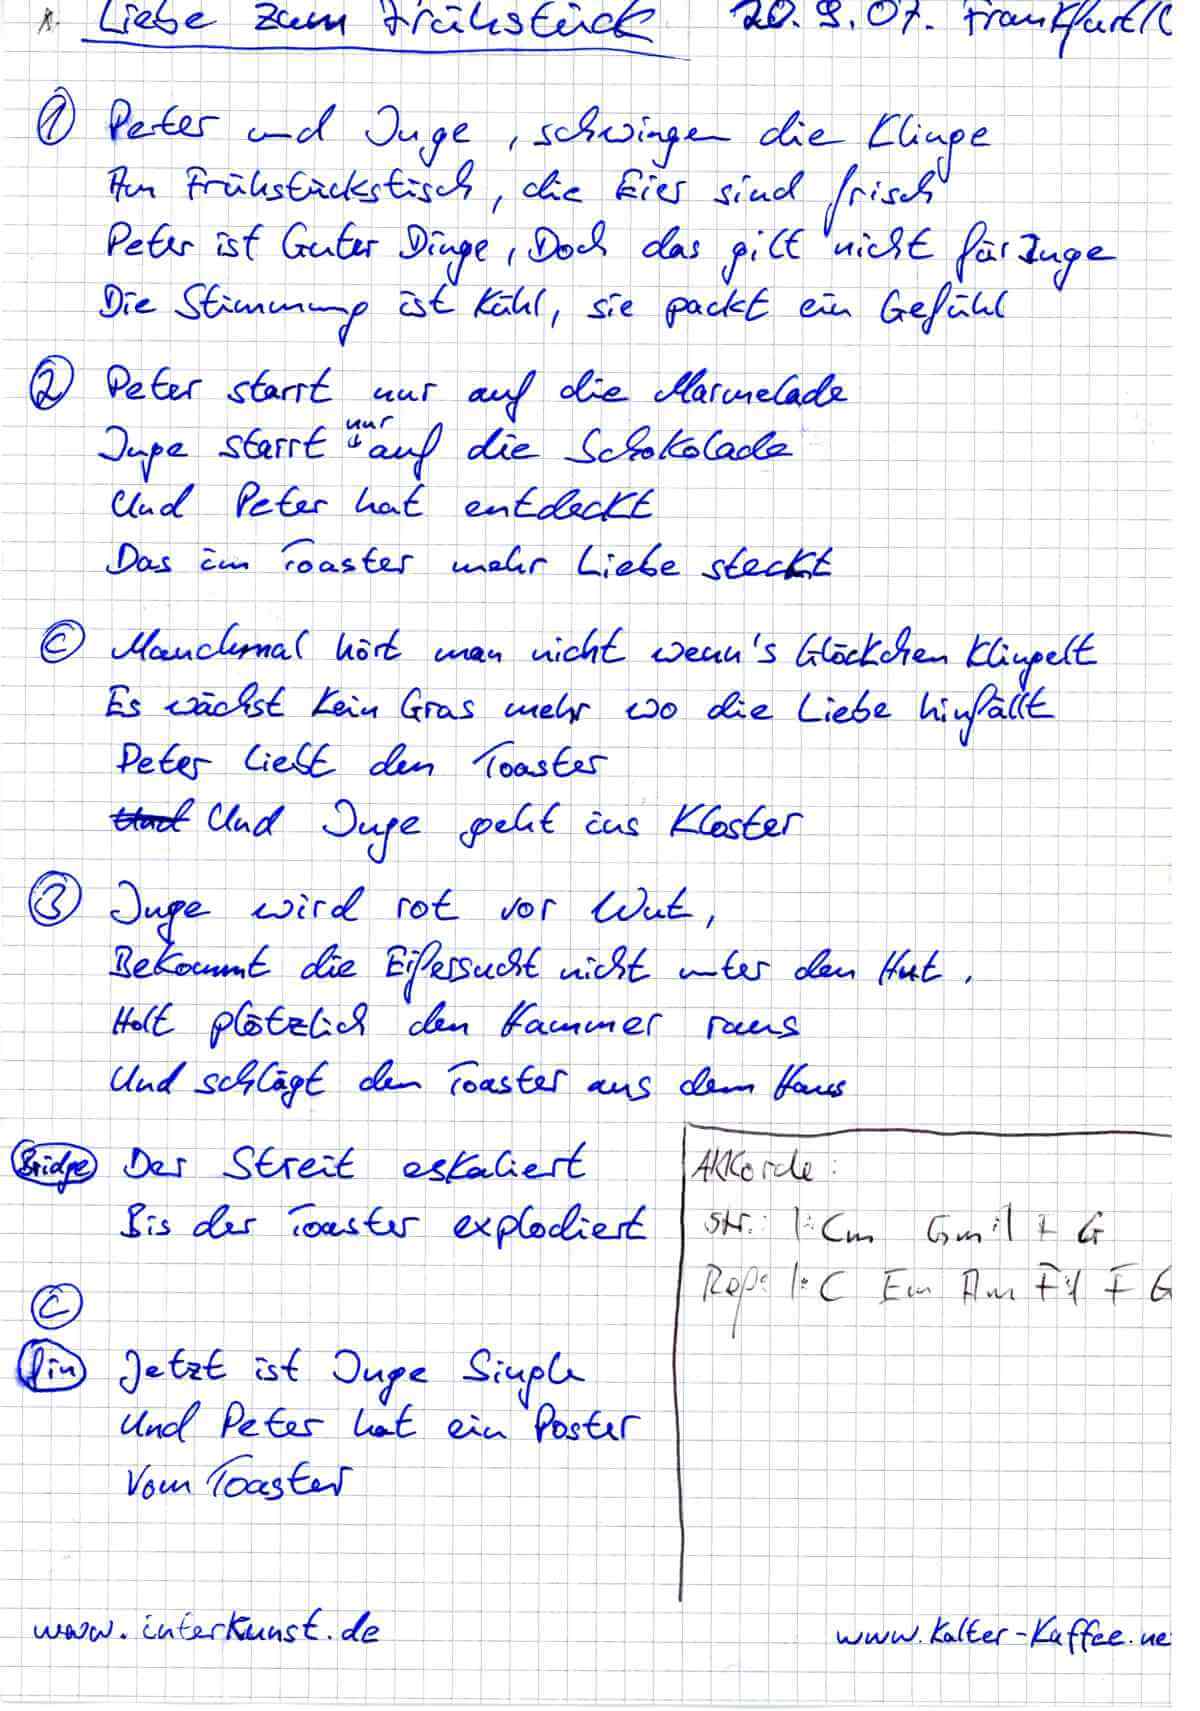 Liebe zum Frühstück 20.9.07. Frankfurt/
① Peter und Inge, schwingen die Klinge
Am Frühstückstisch, die Eier sind frisch
Peter ist Guter Dinge, Doch das gilt nicht für Inge
Die Stimmung ist kühl, sie packt ein Gefühl
② Peter starrt nur auf die Marmelade
Inge starrt nur auf die Schokolade
Und Peter hat entdeckt
Das im Toaster mehr Liebe steckt
Ⓒ Manchmal hört man nicht wenn's Glöckchen klingelt
Es wächst kein Gras mehr wo die Liebe hinfällt
Peter liebt den Toaster
Und Und Inge geht ins Kloster
③ Inge wird rot vor Wut,
Bekommt die Eifersucht nicht unter den Hut.
Holt plötzlich den Hammer raus
Und schlägt den Toaster aus dem Haus
Bridge Der Streit eskaliert
Bis der Toaster explodiert
Ⓒ
Fin Jetzt ist Inge Single
Und Peter hat ein Poster
Vom Toaster
Akkorde:
Str.: |: Cm Gm :| F G
Ref: |: C Em Am F :| F G
www.interkunst.de
www.kalter-kaffee.ne